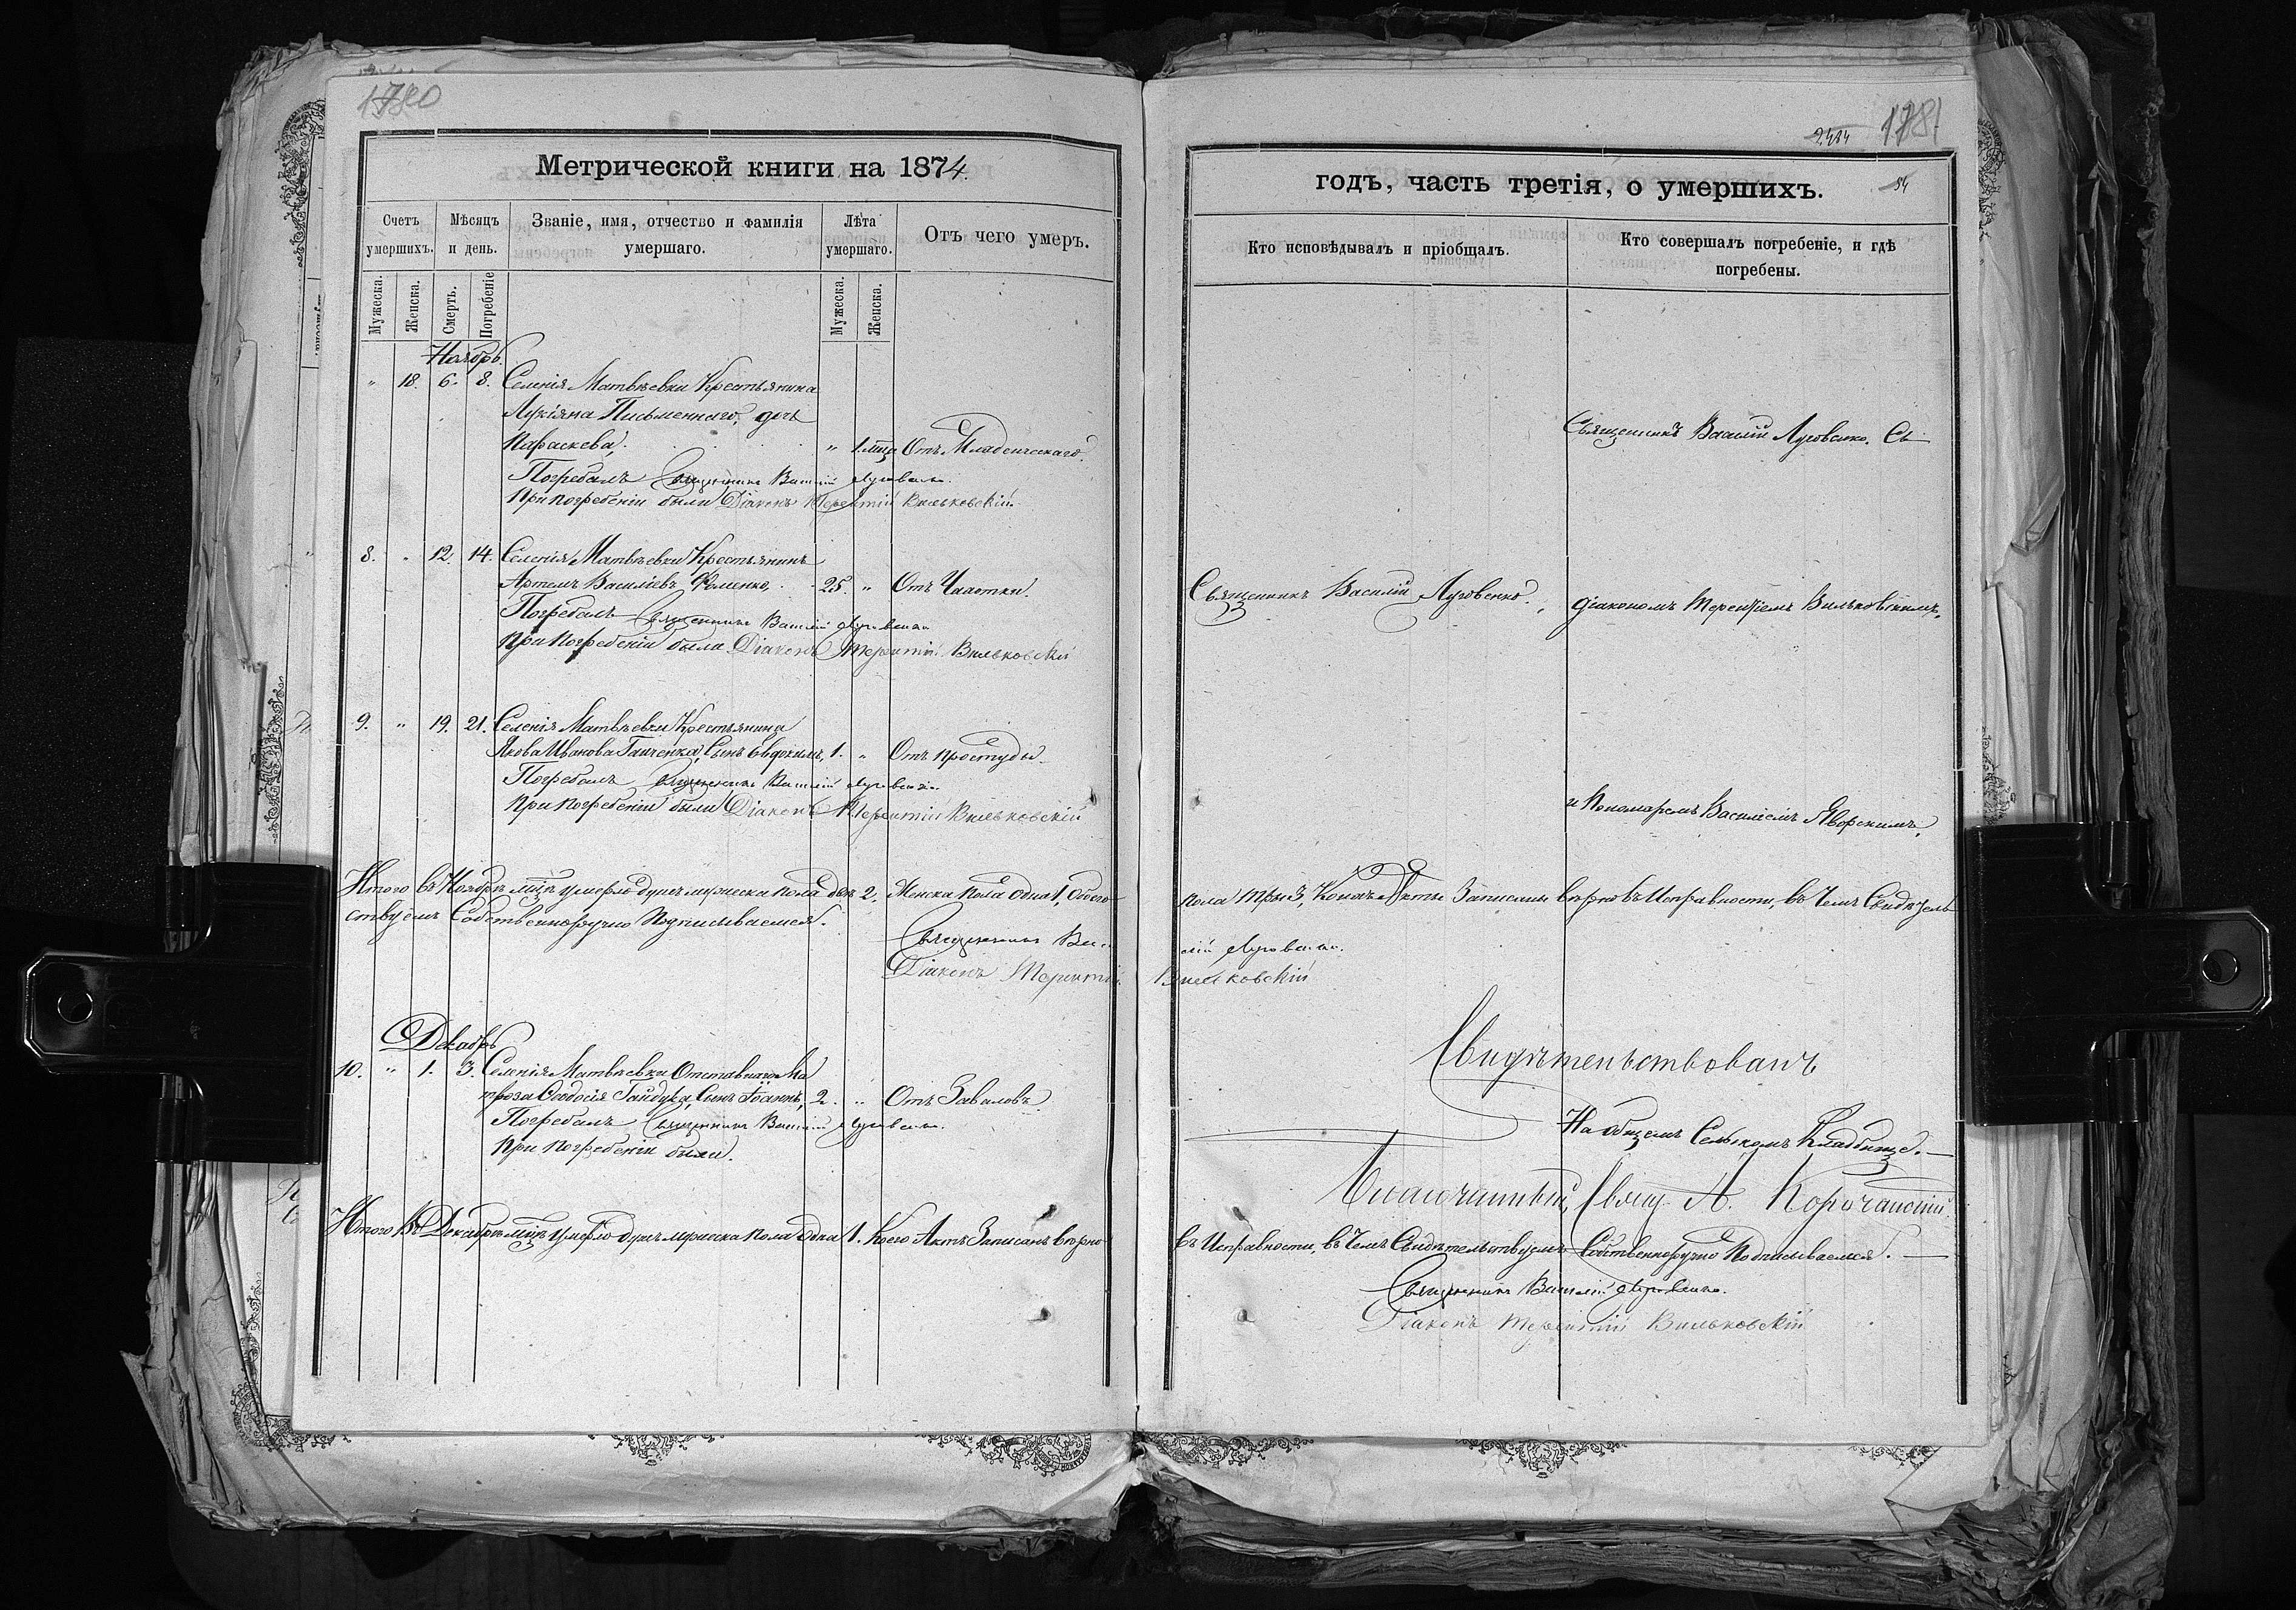 1780
Метрической книги на 1874
Счетъ умершихъ.
Мѣсяцъ и день.
Званіе, имя, отчество и фамилія умершаго.
Лѣта умершаго.
Отъ чего умеръ.
Мужеска.
Женска.
Смерть.
Погребеніе
Мужеска.
Женска.
Ноябрь.
" 18. 6. 8. Селенія Матвѣевки Крестьянина
Лукіяна Письменнаго, дочь
Параскева, " 1. мца Отъ Младенческаго.
Погребалъ Священникъ Василій Луговенко.
При погребеніи были Діаконъ Терентій Вильковскій.
8. " 12. 14. Селенія Матвѣевки Крестьянинъ
Артемъ Василіевъ Фоменко, 25. " Отъ Чахотки.
Погребалъ Священникъ Василій Луговенко
При Погребеніи были Діаконъ Терентій Вильковскій
9. " 19. 21. Селенія Матвѣевки Крестьянина
Якова Иванова Ганченка, Сынъ Евдокимъ, 1. " Отъ простуды.
Погребалъ Священникъ Василій Луговенко.
При погребеніи были Діаконъ Терентій Вильковскій
Итого въ Ноябрѣ мцѣ умерло душъ мужеска пола двѣ 2, Женска пола одна 1, Обоего
ствуемъ Собственноручно Подписываемся.
Священникъ Ва-
Діаконъ Терентій
Декабрь
10. " 1. 3. Селенія Матвѣевки Отставнаго Ма
троза Ѳеодосія Гайдука, Сынъ Іоаннъ, 2. " Отъ Заваловъ.
Погребалъ Священникъ Василій Луговенко.
При погребеніи были.
Итого Въ Декабрѣ мцѣ умерло душъ мужеска пола одна 1. Коего Актъ Записанъ вѣрно
2484
1781
годъ, часть третія, о умершихъ.
54
Кто исповѣдывалъ и пріобщалъ.
Кто совершалъ погребеніе, и гдѣ погребены.
Священникъ Василій Луговенко. Съ
Священникъ Василій Луговенко.
діакономъ Терентіемъ Вильковскимъ,
и Пономаремъ Василіемъ Яворскимъ,
пола три 3, Коихъ Акты Записаны вѣрно въ Исправности, въ Чемъ Свидѣтель
силій Луговенко.
Вильковскій
Свидѣтельствовалъ
На общемъ Сельскомъ Кладбищѣ.
Благочинный, Свящ. А. Корочанскій
въ Исправности, въ Чемъ Свидѣтельствуемъ Собственноручно Подписываемся.
Священникъ Василій Луговенко.
Діаконъ Терентій Вильковскій